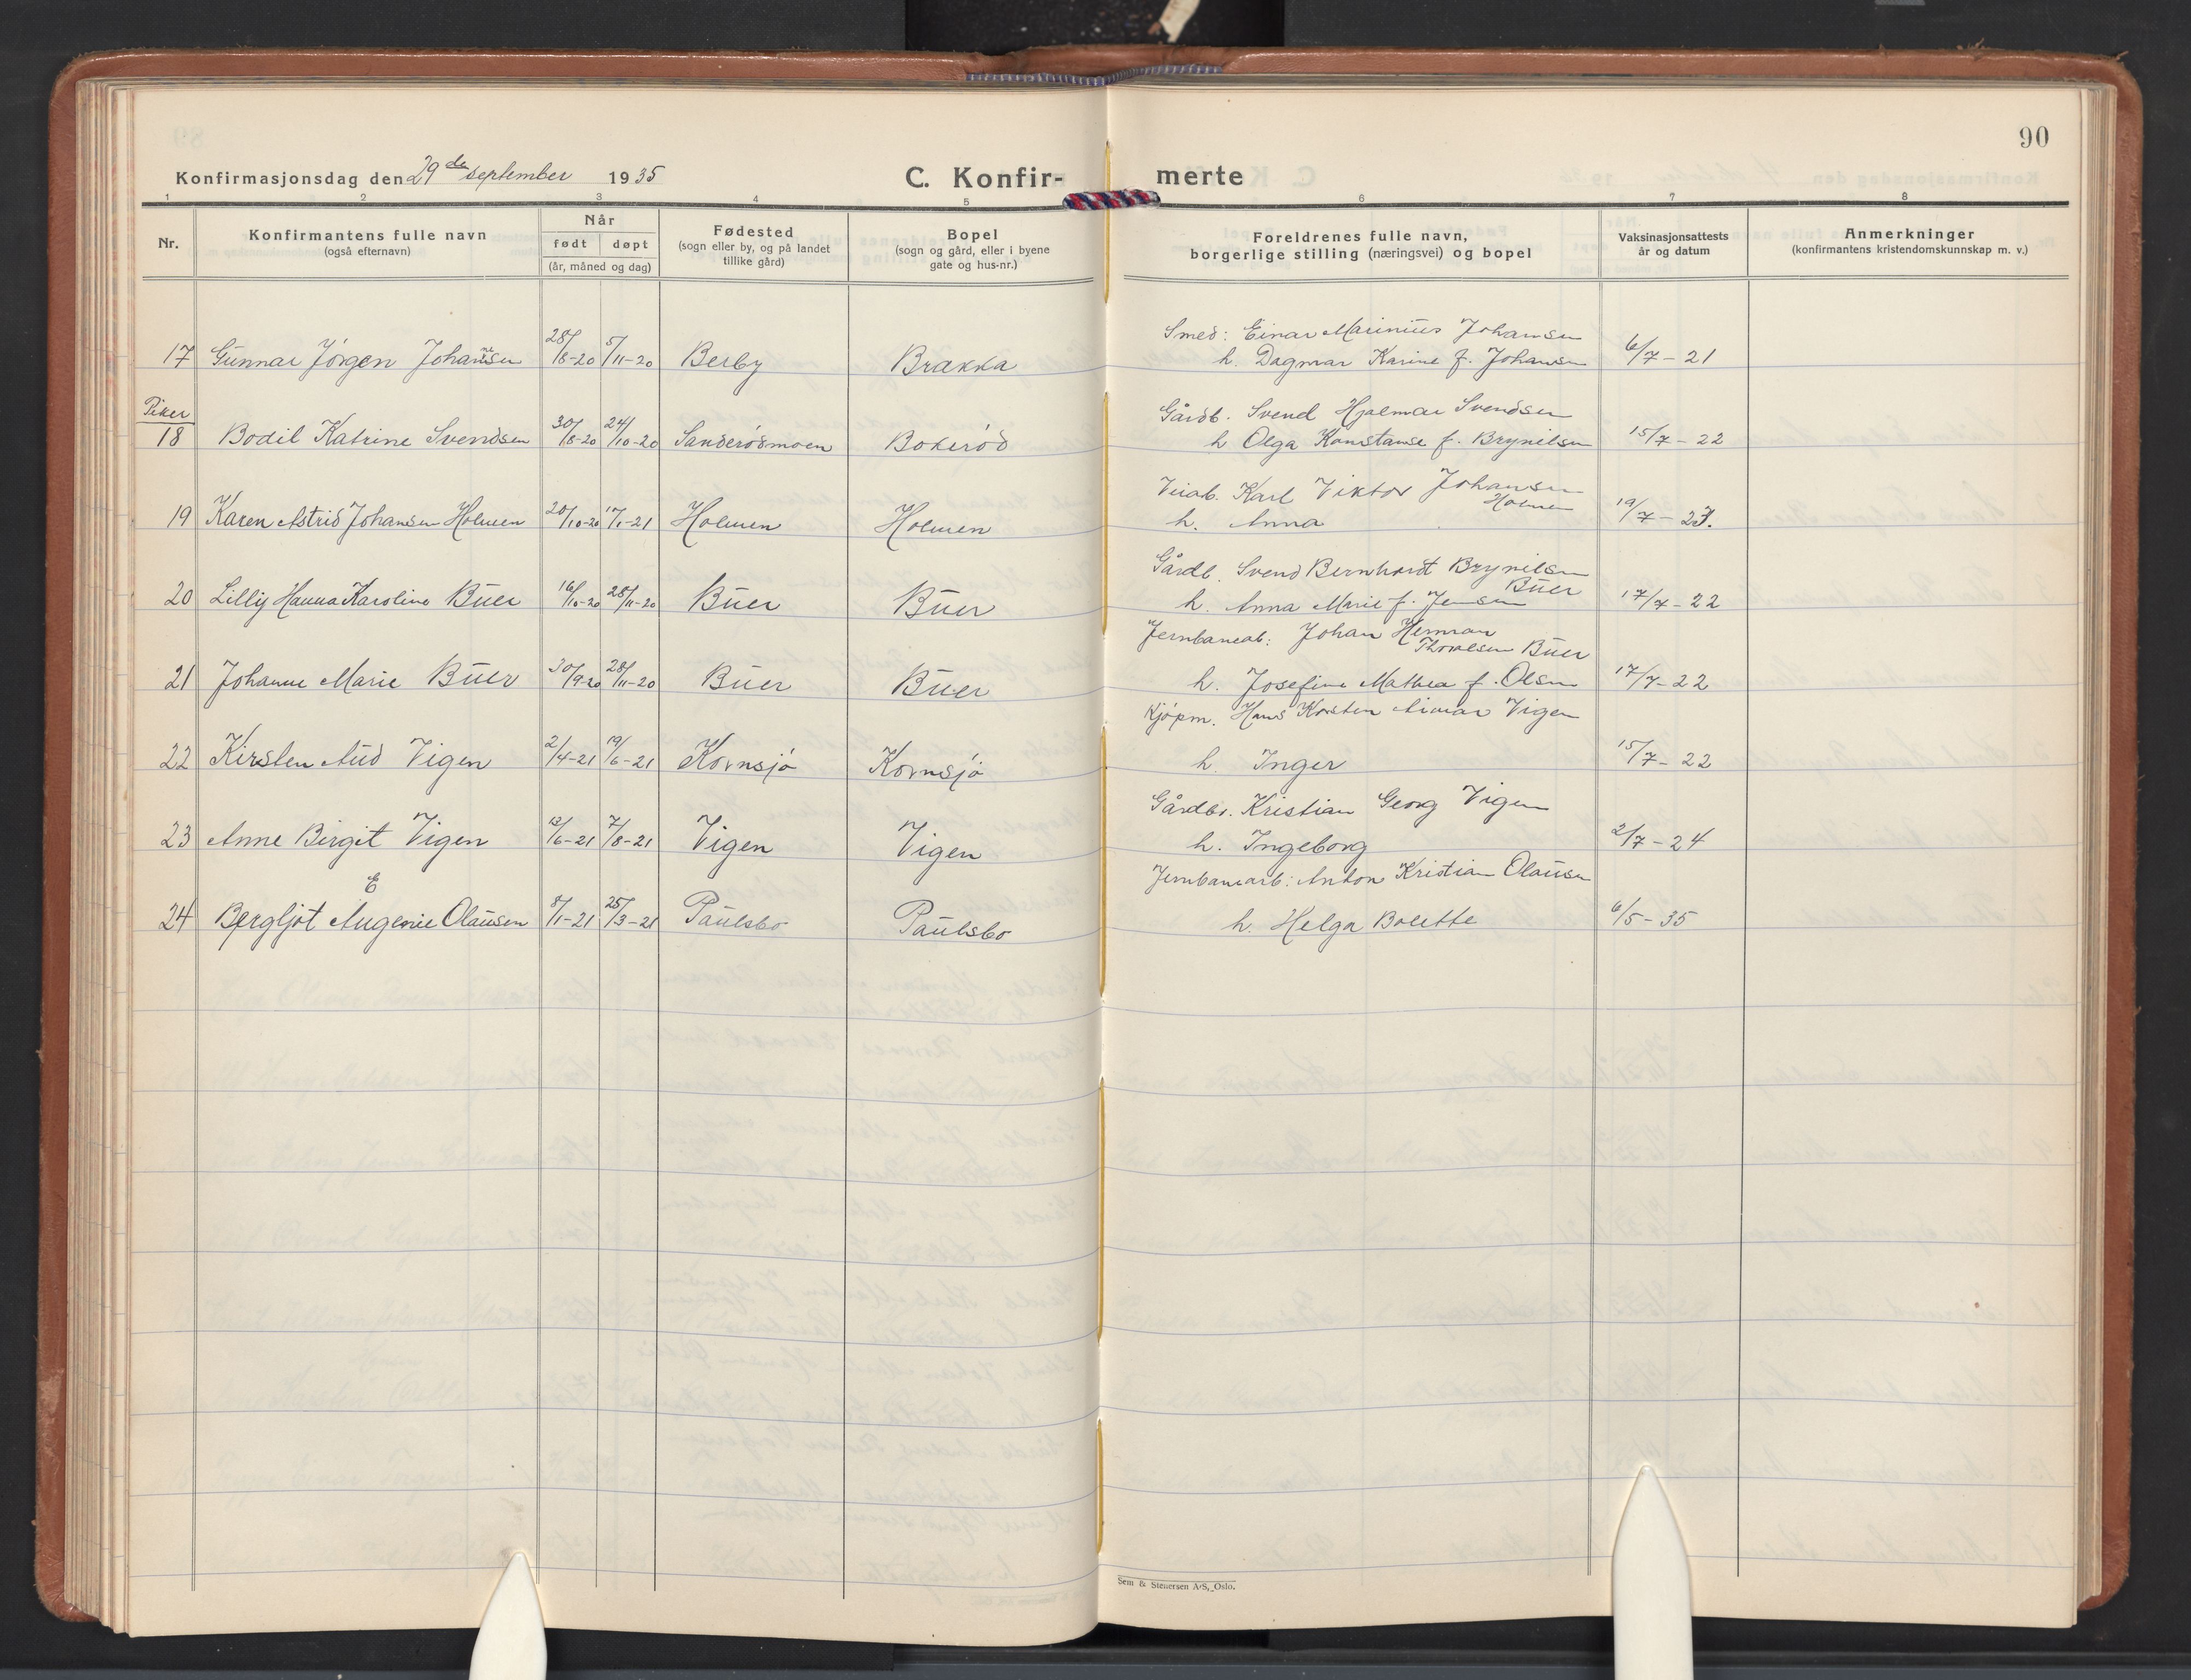 90
Konfirmasjonsdag den 29de september 1935
C. Konfirmerte
1 2 3 4 5 6 7 8
Nr.
Konfirmantens fulle navn
(også efternavn)
Når
født døpt
(år, måned og dag)
Fødested
(sogn eller by, og på landet
tillike gård)
Bopel
(sogn og gård, eller i byene
gate og hus-nr.)
Foreldrenes fulle navn,
borgerlige stilling (næringsvei) og bopel
Vaksinasjonsattests
år og datum
Anmerkninger
(konfirmantens kristendomskunnskap m. v.)
Smed: Einar Marinius Johansen
17 Gunnar Jörgen Johansen 28/8-20 5/11-20 Berby Brakka h. Dagmar Karine f. Johansen 6/7-21
Piker
Gårdb. Svend Hjalmar Svendsen
18 Bodil Katrine Svendsen 30/8-20 24/10-20 Sanderödmoen Bokeröd h Olga Konstanse f. Brynilsen 15/7-22
Karl Viktor Johansen
Holmen
19 Karen Astrid Johansen Holmen 20/10-20 17/1-21 Holmen Holmen h. Anna 19/7-23.
Gårdb. Svend Bernhardt Brynilsen
Buer
20 Lilly Hanna Karoline Buer 16/10-20 28/11-20 Buer Buer h. Anna Marie f. Jensen 17/7-22
Jernbaneab: Johan Herman
Thoralsen Buer
21 Johanne Marie Buer 30/9-20 28/11-20 Buer Buer h. Josefine Mathea f. Olsen 17/7-22
Kjöpm. Hans Karsten Aimar Vigen
22 Kirsten Aud Vigen 2/4-21 19/6-21 Kornsjö Kornsjö h. Inger 15/7-22
Gårdbr. Kristian Georg Vigen
23 Anne Birgit Vigen 12/6-21 7/8-21 Vigen Vigen h. Ingeborg 2/7-24
Jernbanearb: Anton Kristian Olausen
E
24 Bergljot Augenie Olausen 8/1-21 25/3-21 Paulsbo Paulsbo h. Helga Bolette 6/5-35
Sem & Stenersen A/S, Oslo.